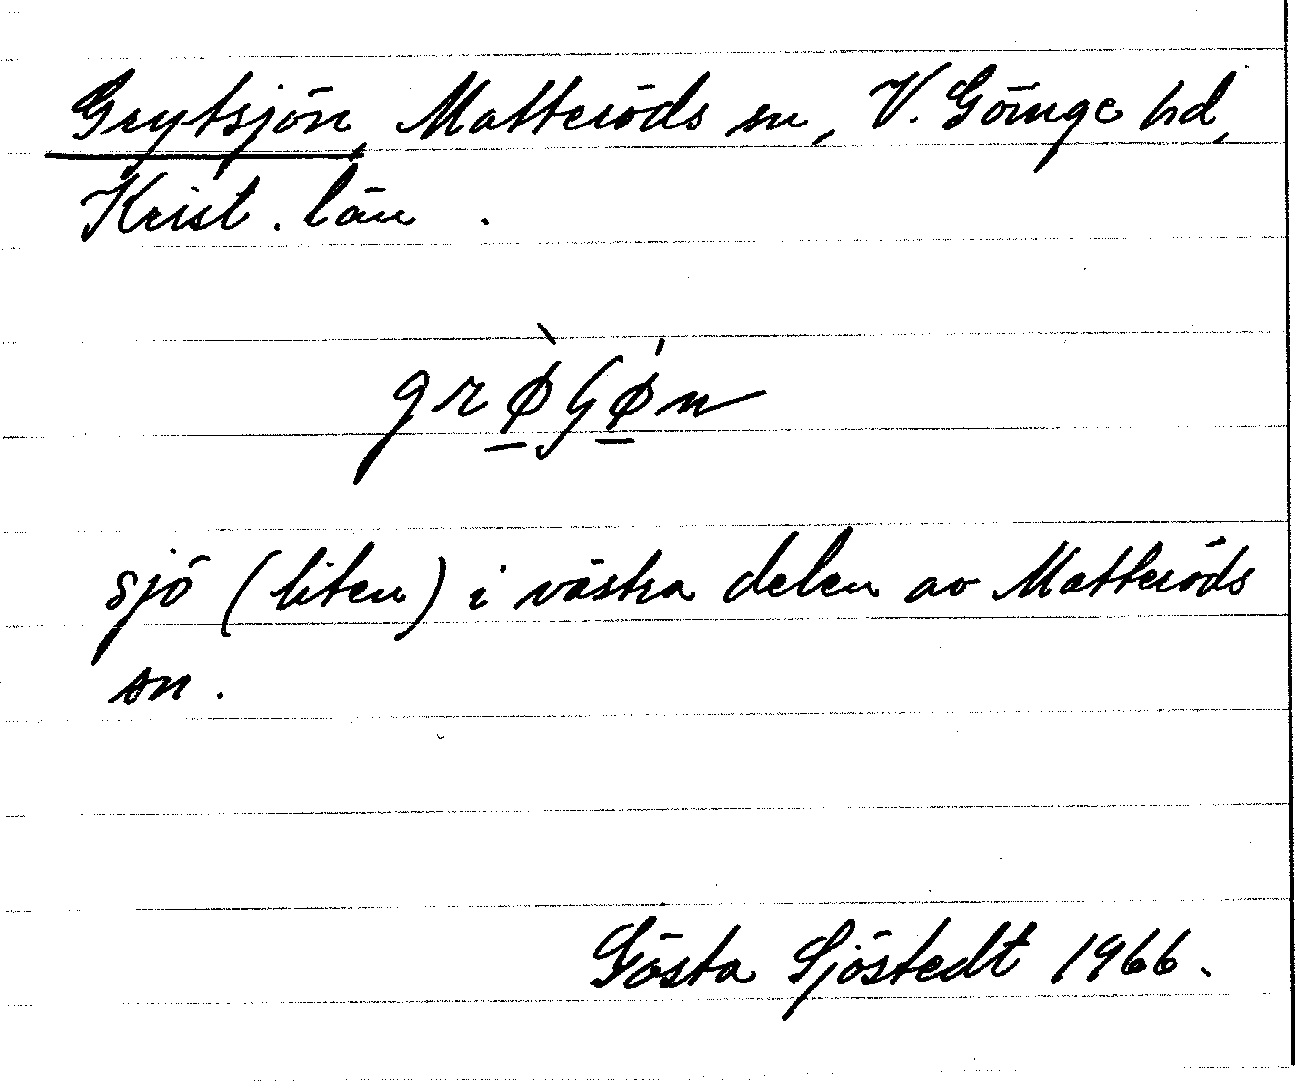 Grytsjön, Matteröds sn, V. Göinge hd,
Krist. län .
grø̲̀ʃǿ̲n
sjö (liten) i västra delen av Matteröds
sn.
Gösta Sjöstedt 1966.